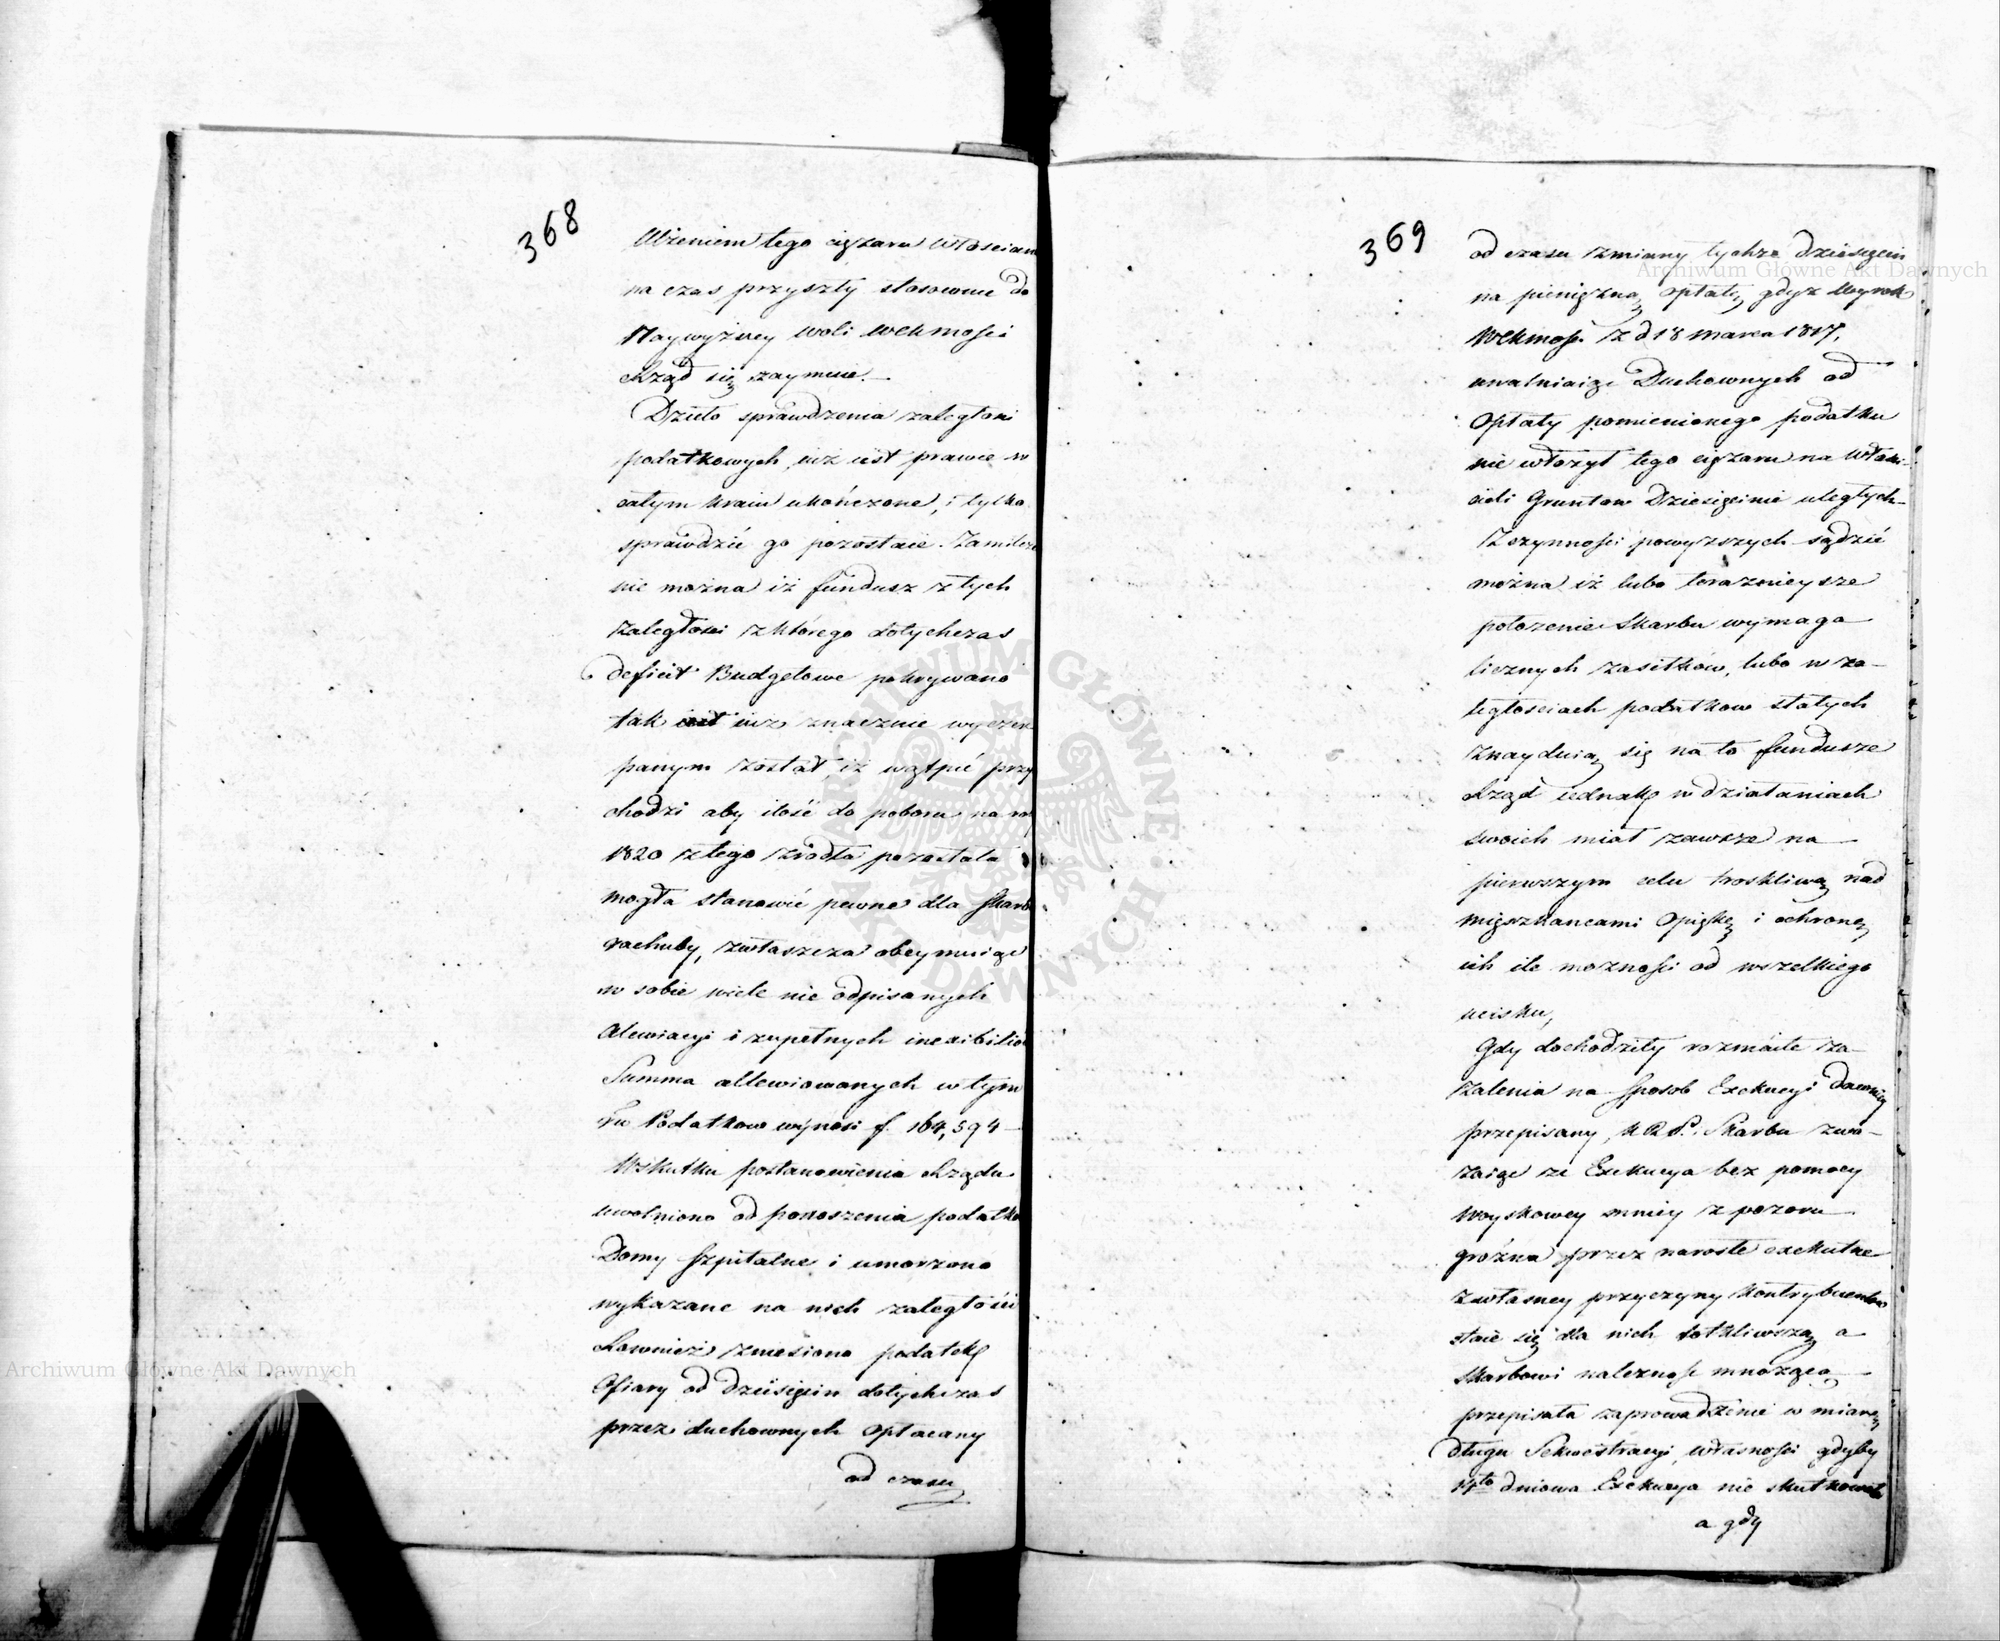 368
Ulżeniem tego ciężaru Włościan
na czas przyszły stosownie do
Naywyższey woli WCKMości
Rząd się zaymuie.
Dzieło sprawdzenia zaległości
podatkowych iuż iest prawie w
całym kraiu ukończone, i tylko
sprawdzić go pozostaie. Zamilczeć
nie można iż fundusz z tych
zaległości z którego dotychczas
deficit Budgetowe pokrywano
tak iuż znacznie wyczer
panym został, iż wątpić przy
chodzi aby ilość do poboru na rok
1820 z tego źródła pozostała
mogła stanowić pewne dla Skarbu
rachuby, zwłaszcza obeymuiąc
w sobie wiele nie odpisanych
Alewiacyi i zupełnych inexibiliów
Summa allewiowanych w tym
Podatkow wynosi f. 164,594
Wskutku postanowienia Rządu
uwolniono od ponoszenia podatku
Domy Szpitalne i umorzono
wykazane na nich zaległości
Rownież zniesiono podatek
Ofiary od dziesięcin dotychczas
przez duchownych opłacany
od czasu
369
od czasu zmiany tychże dziesięcin
na pieniężną opłatę, gdyż Wyrok
WCKMości z d 18 Marca 1817,
uwalniaiąc Duchownych od
Opłaty pomienionego podatku
nie włożył tego ciężaru na Właści-
cieli Gruntow Dziesięcinie uległych
Z czynności powyższych sądzić
można iż lubo teraznieysze
położenie Skarbu wymaga
licznych zasiłków, lubo w za-
ległościach podatkow stałych
znayduią się na to fundusze
Rząd iednak w działaniach
swoich miał zawsze na
pierwszym celu troskliwą nad
mięszkancami Opiekę i ochronę
ich ile możności od wszelkiego
ucisku,
Gdy dochodziły rozmaite za-
żalenia na sposob Exekucyi dawniey
przepisany, K.R.P. Skarbu zwa-
żaiąc że Exekucya bez pomocy
Woyskowey mniey z pozoru
groźna przez narosłe exekutne
z własney przyczyny kontrybuentow
staie się dla nich dotkliwszą a
Skarbowi należność mnożącą
przepisała zaprowadzenie w miarę
długu Sekwestracyi, własności gdyby
14to dniowa Exekucya nie skutkowała
a gdy
Archiwum Główne Akt Dawnych
Archiwum Główne Akt Dawnych
ARCHIWUM GŁÓWNE AKT DAWNYCH